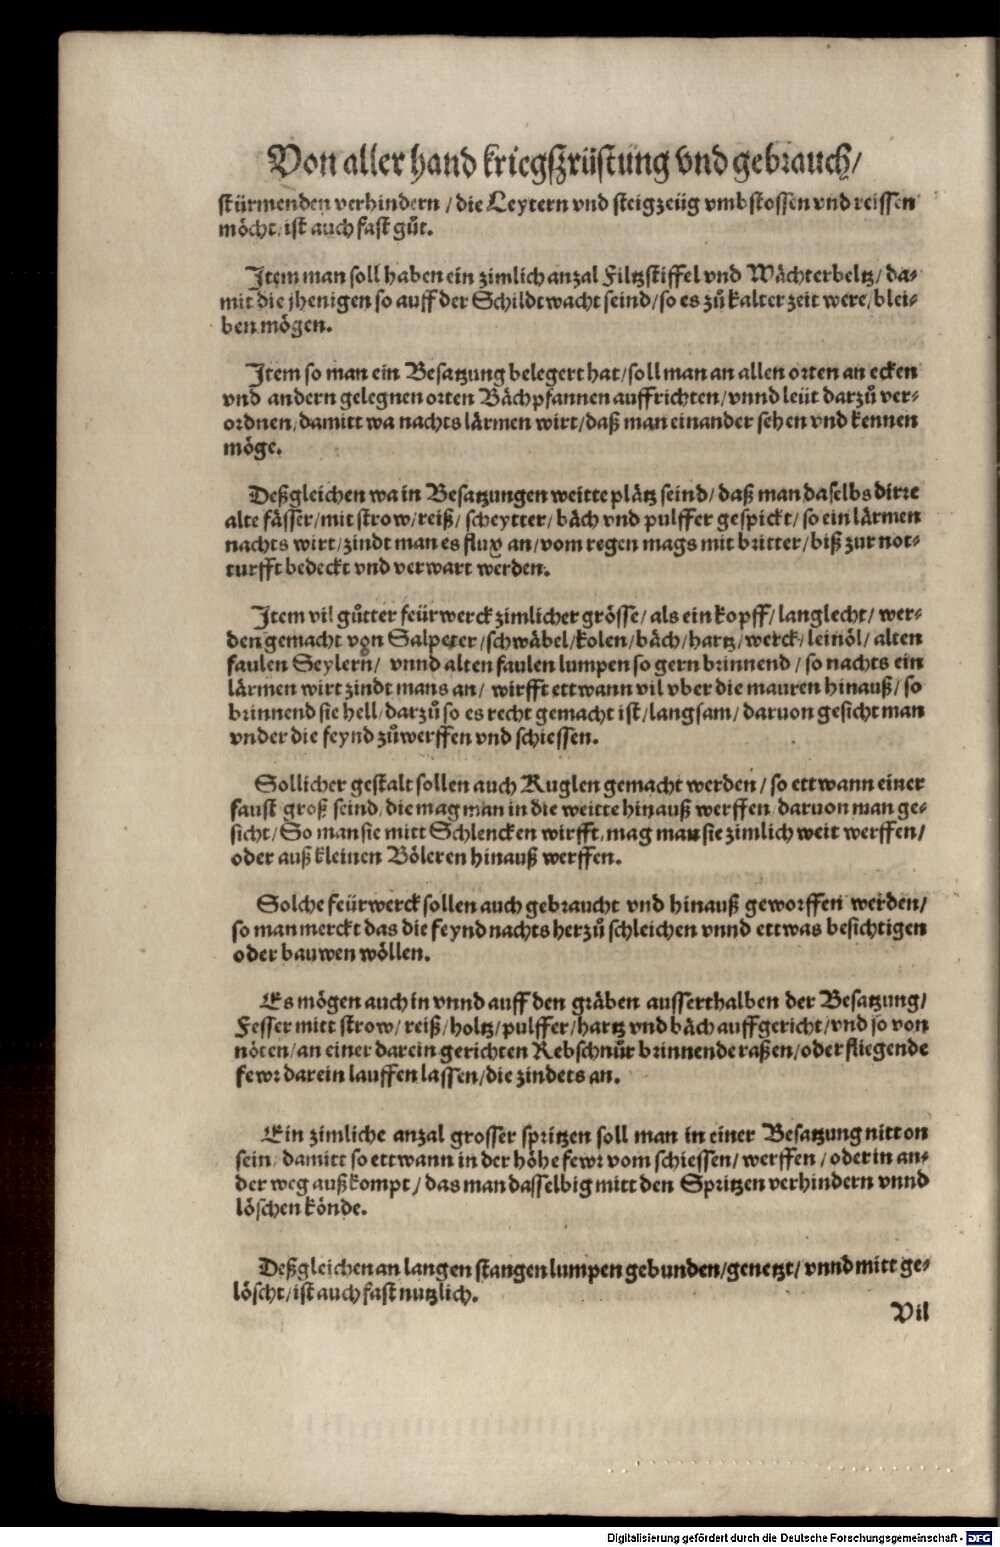 Von aller hand kriegßrüstung vnd gebrauch/
stürmenden verhindern / die Leytern vnd steigzeüg vmbstossen vnd reissen
möcht, ist auch fast gůt.
Item man soll haben ein zimlich anzal Filtzstiffel vnd Wächterbeltz/ da-
mit die jhenigen so auff der Schildtwacht seind/ so es zů kalter zeit were/ blei-
ben mögen.
Item so man ein Besatzung belegert hat/ soll man an allen orten an ecken
vnd andern gelegnen orten Bächpfannen auffrichten/ vnnd leüt darzů ver-
ordnen/ damitt wa nachts lärmen wirt/ daß man einander sehen vnd kennen
möge.
Deßgleichen wa in Besatzungen weitte plätz seind/ daß man daselbs dirre
alte fässer/ mit strow/ reiß/ scheytter/ bäch vnd pulffer gespickt/ so ein lärmen
nachts wirt/ zindt man es flux an/ vom regen mags mit britter/ biß zur not-
turfft bedeckt vnd verwart werden.
Item vil gůtter feürwerck zimlicher grösse/ als ein kopff/ langlecht/ wer-
den gemacht von Salpeter/ schwäbel/ kolen/ bäch/ hartz/ werck/ leinöl/ alten
faulen Seylern/ vnnd alten faulen lumpen so gern brinnend / so nachts ein
lärmen wirt zindt mans an/ wirfft ettwann vil vber die mauren hinauß/ so
brinnend sie hell/ darzů so es recht gemacht ist/ langsam/ daruon gesicht man
vnder die feynd zůwerffen vnd schiessen.
Sollicher gestalt sollen auch Kuglen gemacht werden / so ettwann einer
faust groß seind/ die mag man in die weitte hinauß werffen/ daruon man ge-
sicht/ So man sie mitt Schlencken wirfft, mag man sie zimlich weit werffen/
oder auß kleinen Böleren hinauß werffen.
Solche feürwerck sollen auch gebraucht vnd hinauß geworffen werden/
so man merckt das die feynd nachts herzů schleichen vnnd ettwas besichtigen
oder bauwen wöllen.
Es mögen auch in vnnd auff den gräben ausserthalben der Besatzung/
Fesser mitt strow/ reiß/ holtz/ pulffer/ hartz vnd bäch auffgericht/ vnd so von
nöten/ an einer darein gerichten Rebschnůr brinnende raßen/ oder fliegende
fewr darein lauffen lassen/ die zindets an.
Ein zimliche anzal grosser spritzen soll man in einer Besatzung nitt on
sein/ damitt so ettwann in der höhe fewr vom schiessen/ werffen / oder in an-
der weg außkompt / das man dasselbig mitt den Spritzen verhindern vnnd
löschen könde.
Deßgleichen an langen stangen lumpen gebunden/ genetzt/ vnnd mitt ge-
löscht/ ist auch fast nutzlich.
Vil
Digitalisierung gefördert durch die Deutsche Forschungsgemeinschaft - DFG